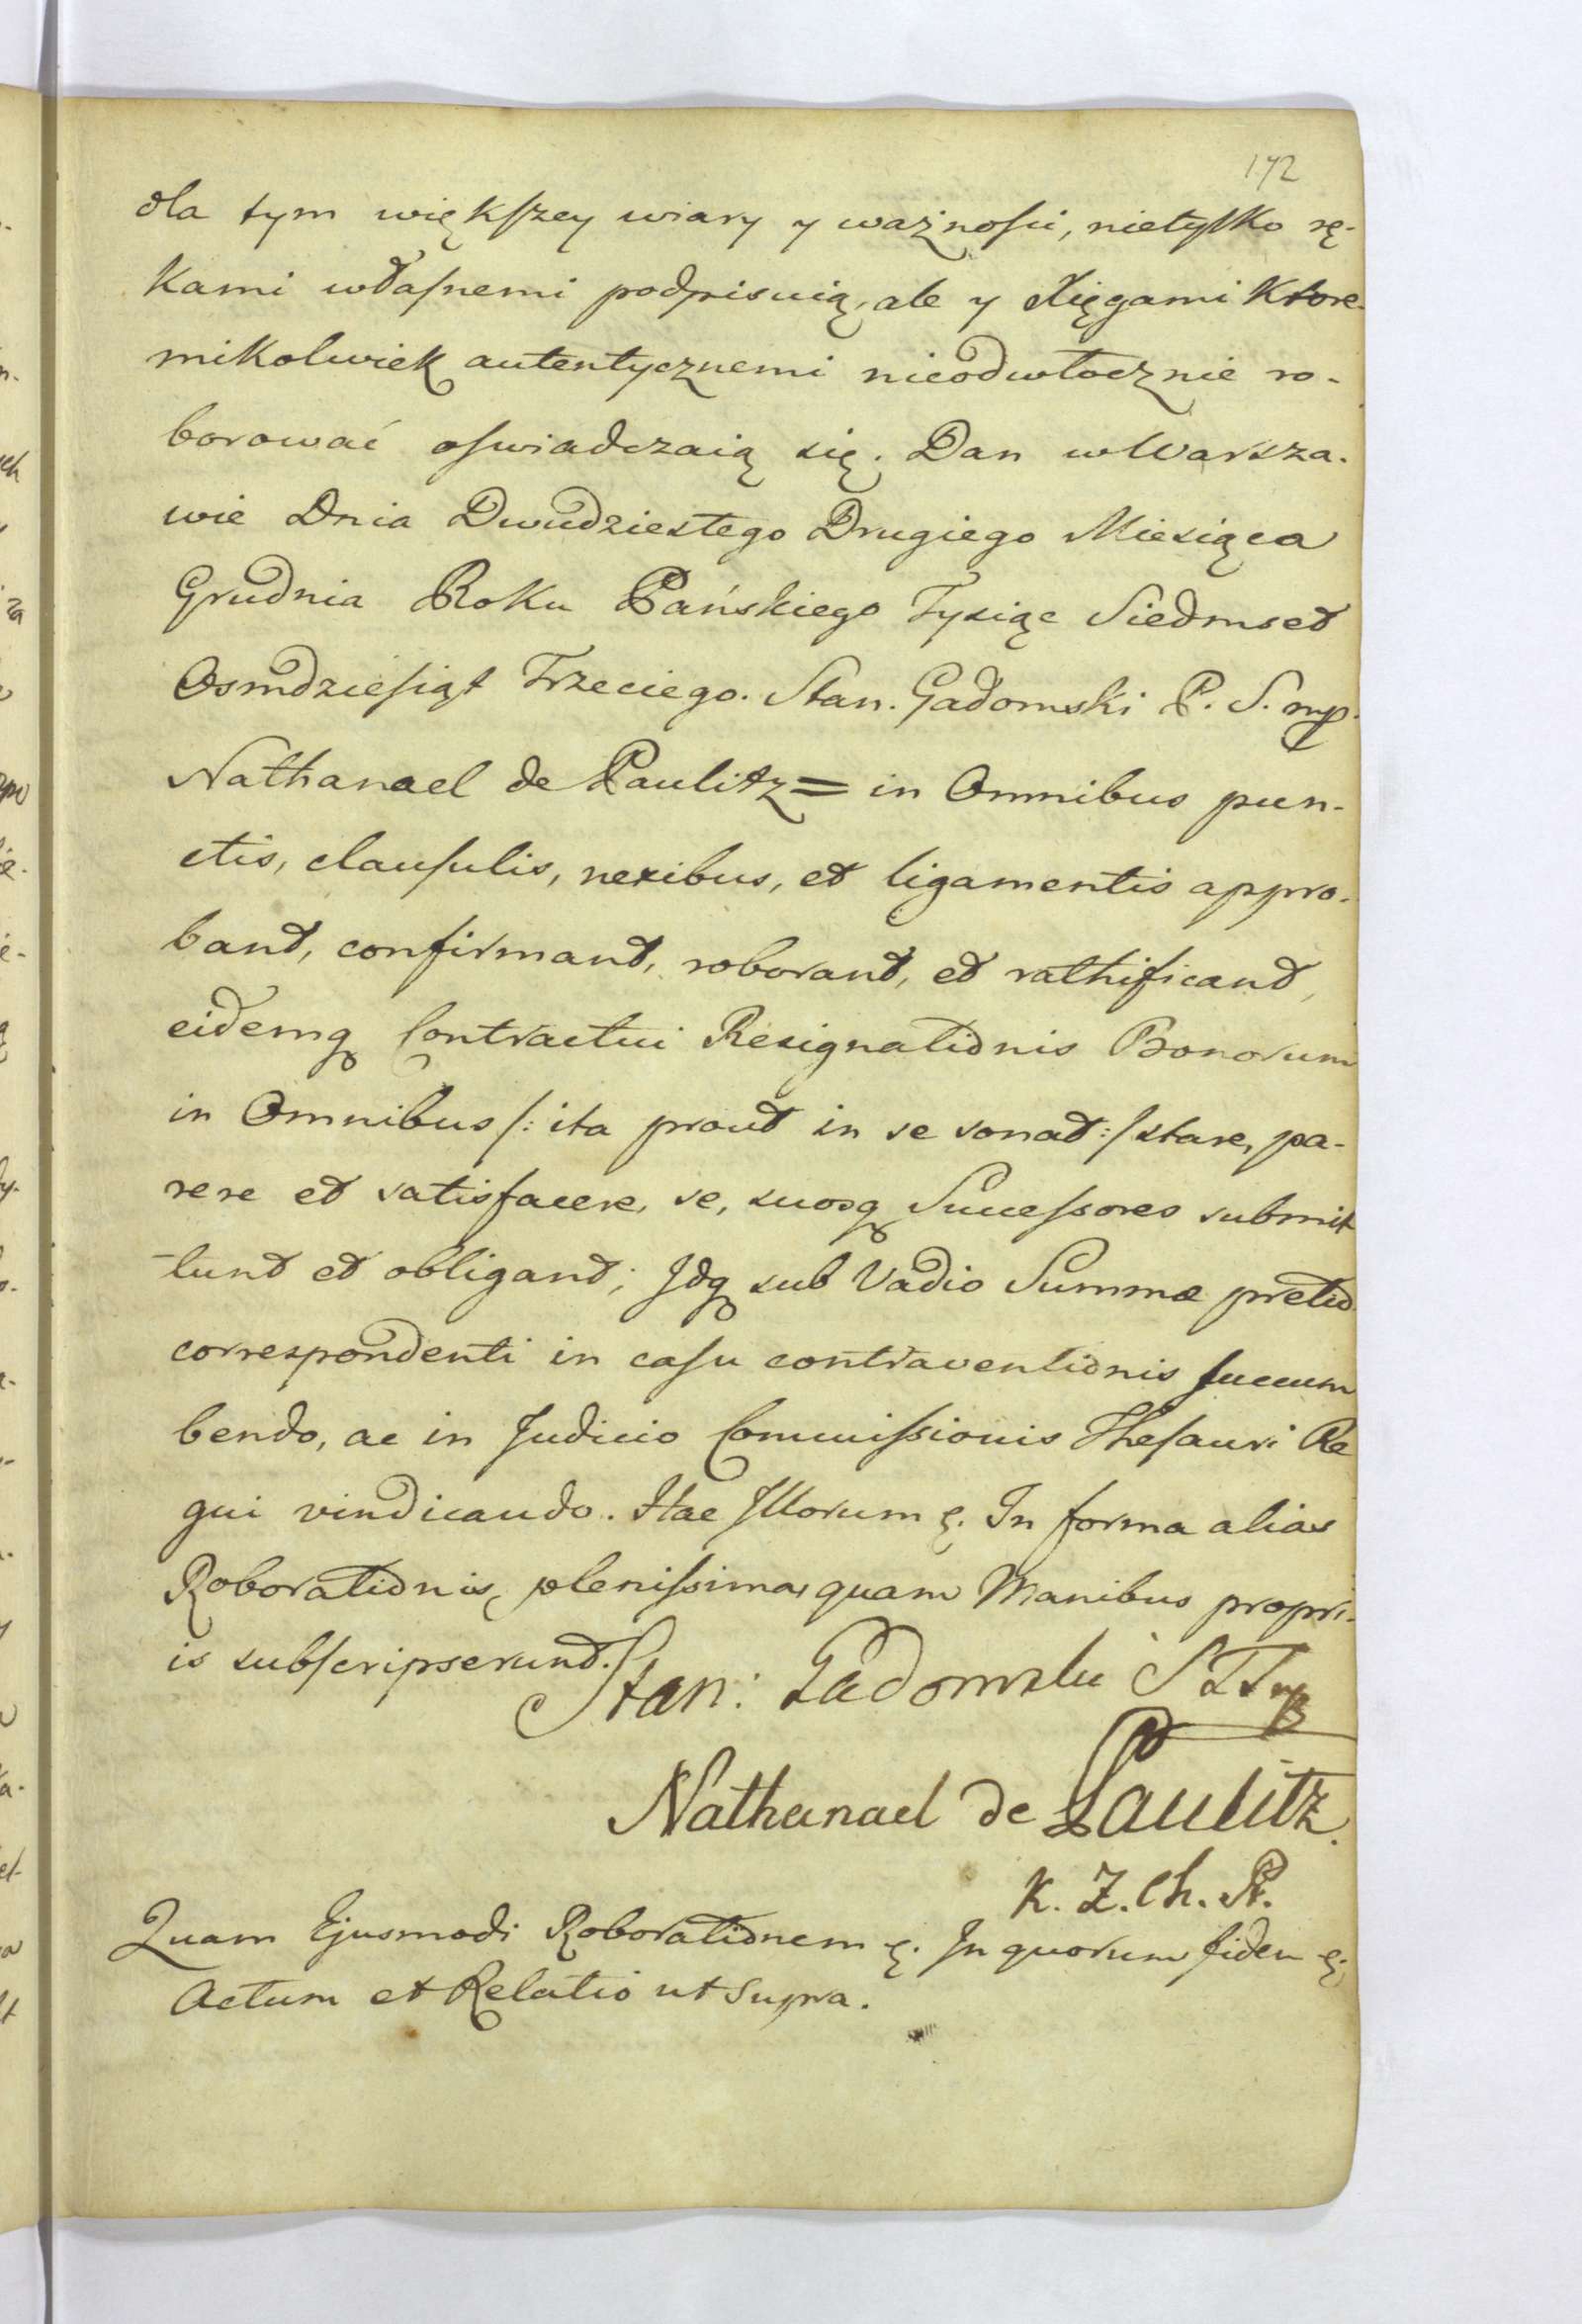 172
dla tym większey wiary y ważnosci, nietylko rę-
kami własnemi podpisuią, ale y Xięgami ktore-
mikolwiek autentycznemi nieodwłocznie ro-
borować oswiadczaią się. Dan w Warsza-
wie Dnia Dwudziestego Drugiego Miesiąca
Grudnia Roku Pańskiego Tysiąc Siedmset
Osmdziesiąt Trzeciego. Stan. Gadomski P. S. mp.
Nathanael de Paulitz = in Omnibus pun-
ctis, clausulis, nexibus, et ligamentis appro-
bant, confirmant, roborant, et rathificant,
eidemq Contractui Resignationis Bonorum
in Omnibus /: ita prout in se sonat :/ stare, pa-
rere et satisfacere, se, suosq Successores submit
-tunt et obligant; Jdq sub Vadio Summæ pretio
correspondenti in casu contraventionis succum
bendo, ac in Judicio Commissionis Thesauri Re
gni vindicando. Hac Illorum &. In forma alias
Roborationis plenissima, quam Manibus propri-
is subscripserunt. Stan: Gadomski
Nathanael de Paulitz.
K. Z. Ch. Pr.
Quam Ejusmodi Roborationem &. In quorum fidem &;
Actum et Relatio ut Supra.